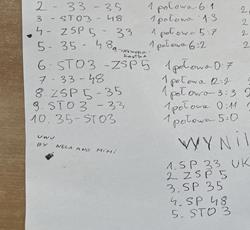 2 - 33 - 35 1 połowa 6:1 2
3 - STO3 - 48 1 połowa 1:3 2
4 - ZSP5 - 33 1 połowa 5:7 2
5 - 35 - 48 1 połowa 6:2 2
6 - STO3 - ZSP5 1 połowa 0:7
7 - 33 - 48 1 połowa 2:2
8 - ZSP5 - 35 1 połowa 3:3 2
9. STO3 - 33 1 połowa 0:11
10. 35 - STO3 1 połowa 5:0
UWU
BY NELA AND MIMI
WYNI
1. SP 33 UK
2. ZSP 5
3. SP 35
4. SP 48
5. STO 3